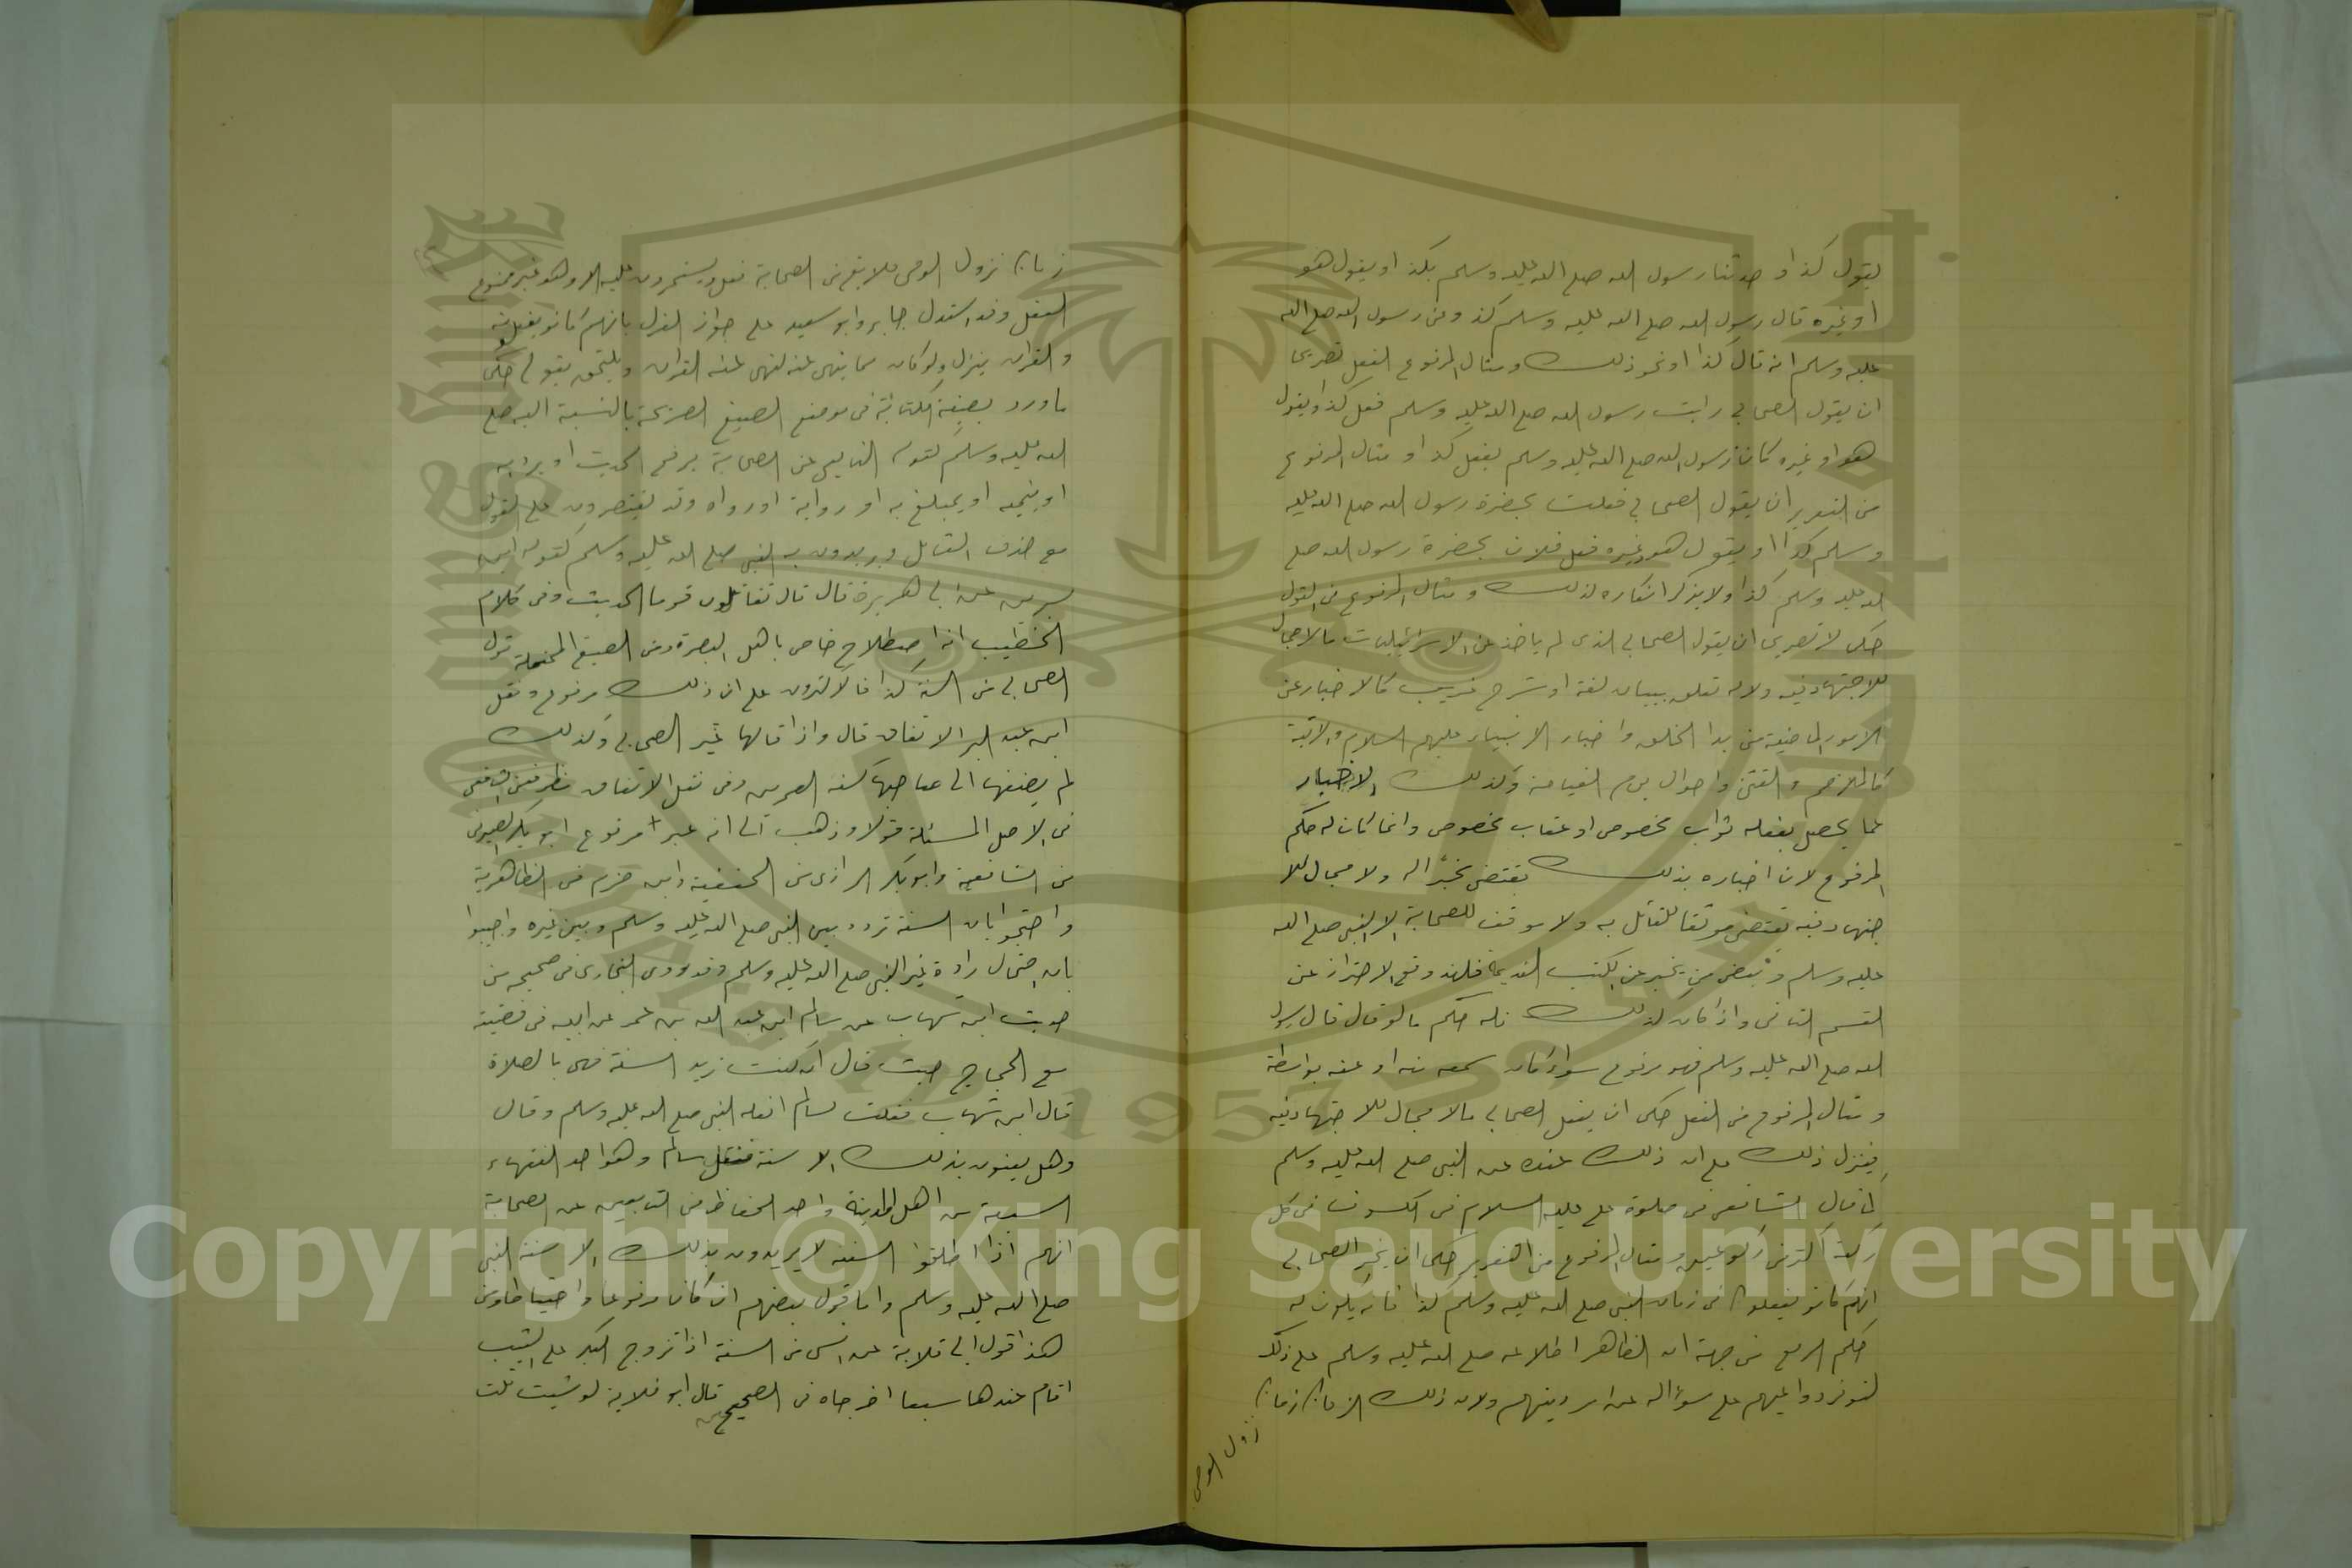 يقول كذا و حدثنا رسول الله صلى الله عليه وسلم بكذا او يقول هو
او غيره قال رسول الله صلى الله عليه وسلم كذ وعن رسول الله صلى الله
عليه وسلم انه قال كذا او نحو ذلك ومثال المرفوع الفعل تصريحا
ان يقول الصحابي رايت رسول الله صلى الله عليه وسلم فعل كذا ويقول
هو او غيره كان رسول الله صلى الله عليه وسلم يفعل كذا و مثال المرفوع
من التقرير ان يقول الصحابي فعلت بحضرة رسول الله صلى الله عليه
وسلم كذا او يقول هو وغيره فعل فلان بحضرة رسول الله صلى
الله عليه وسلم كذا ولا يذكر انكاره لذلك ومثال المرفوع من القول
حكى لا تصريحا ان يقول الصحابي الذى لم ياخذ عن الاسرائيليات مالا مجال
للاجتهاد فيه ولا له تعلق ببيان لغة او شرح غريب كالاخبار عن
الامور الماضية من بدا الخلق واخبار الانبياء عليهم السلام والاتية
كالملاحم والفتن واحوال يوم القيامة وكذلك الاخبار
عما يحصل بفعله ثواب مخصوص او عقاب مخصوص وانما كان له حكم
المرفوع لان اخباره بذلك يقتضى مخبرا له ولا مجال للا
جتهاد فيه يقتضى موقفا للقائل به ولا موقف للصحابة الا النبى صلى الله
عليه وسلم و بعض من يخبر عن الكتب القديمة فلهذ وقع الاحتراز عن
القسم الثانى واذا كان كذلك فله حكم مالو قال قال رسول
الله صلى الله عليه وسلم فهو مرفوع سواء كان سمعه منه او عنه بواسطة
ومثال المرفوع من الفعل حكى ان يفعل الصحابي مالا مجال للاجتهاد فيه
فينزل ذلك على ان ذلك عنده عن النبى صلى الله عليه وسلم
كما قال الشافعى فى صلوة على عليه السلام فى الكسوف فى كل
ركعة اكثر من ركوعين ومثال المرفوع من التقرير حكى ان يخبر الصحابي
انهم كانو يفعلون فى زمان النبى صلى الله عليه وسلم كذا فانه يكون له
حكم الرفع من جهة ان الظاهر اطلاعه صلى الله عليه وسلم على ذلك
لتوفر دواعيهم على سؤاله عن امر دينهم ولان ذلك الزمان زمان
نزول الوحى
زمان نزول الوحى فلا يقع من الصحابة فعل ويستمرون عليه الا وهو غير ممنوع
الفعل وقد استدل جابر وابو سعيد على جواز العزل بانهم كانو يفعلونه
والقران ينزل ولو كان مما ينهى عنه لنهى عنه القران ويلتحق بقولى حكى
ما ورد بصيغة الكناية فى موضع الصيغ الصريحة بالنسبة اليه صلى
الله عليه وسلم كقول التابعي عن الصحابة يرفع الحديث او يرويه
او ينميه او يبلغ به او رواية او رواه وقد يقتصرون على القول
مع حذف القائل ويريدون به النبى صلى الله عليه وسلم كقول ابن
سيرين عن ابى هريرة قال قال تقاتلون قوما الحديث وفى كلام
الخطيب انه اصطلاح خاص باهل البصرة ومن الصيغ المحتملة قول
الصحابي من السنة كذا فالاكثرون على ان ذلك مرفوع ونقل
ابن عبد البر الاتفاق قال واذا قالها غير الصحابي وكذلك
لم يضفها الى صاحبها كسنة العمرين وفى نقل الاتفاق نظر فعن الشافعى
فى الاصل المسئلة قولا وذهب الى انه غير مرفوع ابو بكر الصيرفى
من الشافعية وابو بكر الرازى من الحنفية وابن حزم من الظاهرية
واحتجوا بان السنة تردد بين النبى صلى الله عليه وسلم وبين غيره واجيبوا
بان احتمال رادة غير النبى صلى الله عليه وسلم وقد روى البخارى فى صحيحه من
حديث ابن شهاب عن سالم ابن عبد الله بن عمر عن ابيه فى قصته
مع الحجاج حيث قال ان كنت تريد السنة فهى بالصلاة
قال ابن شهاب فقلت لسالم افعله النبى صلى الله عليه وسلم وقال
وهل يعنون بذلك الا سنة فنقل سالم وهو احد الفقهاء
السبعة من اهل المدينة واحد الحفاظ من التابعين عن الصحابة
انهم اذا اطلقو السنة لا يريدون بذلك الا سنة النبى
صلى الله عليه وسلم واما قول بعضهم ان كان مرفوعا
هذا قول ابى قلابة عن انس من السنة اذا تزوج البكر على الثيب
اقام عندها سبعا اخرجاه فى الصحيحين قال ابو قلابة لو شيت قلت
Copyright © King Saud University
1957